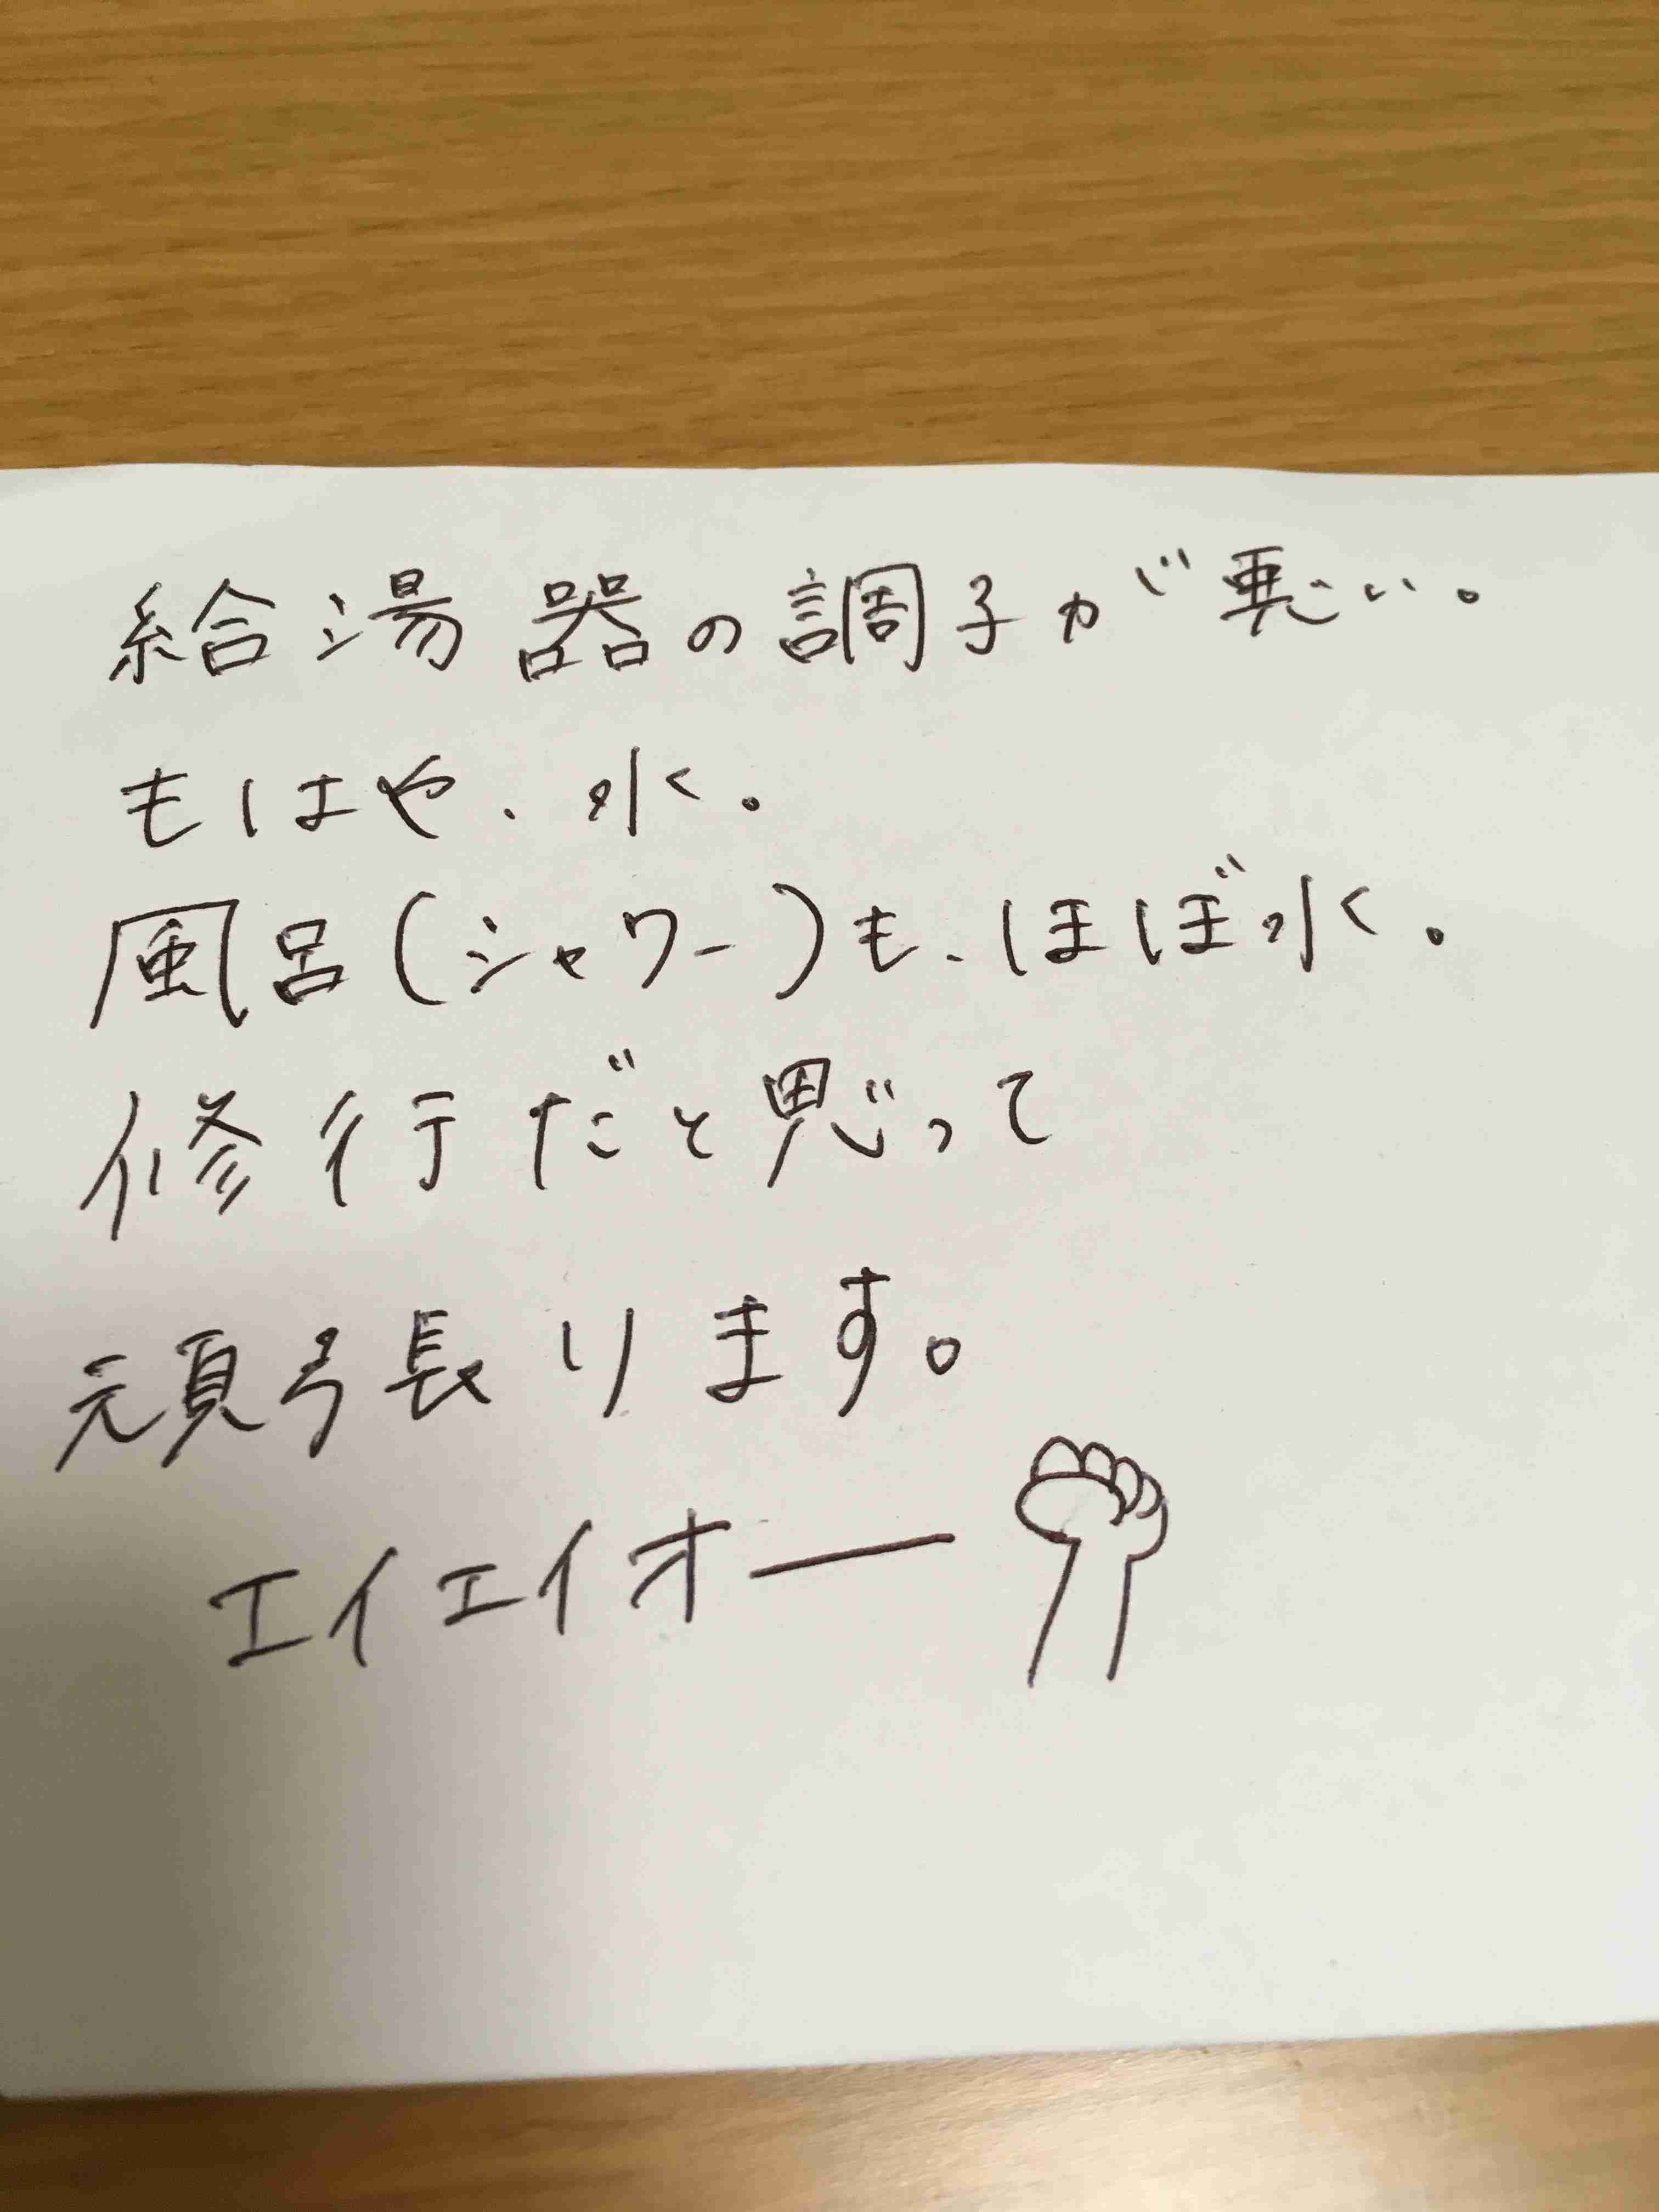 給湯器の調子が悪い。
もはや、水。
風呂(シャワー)も、ほぼ水。
修行だと思って
頑張ります。
エイエイオー